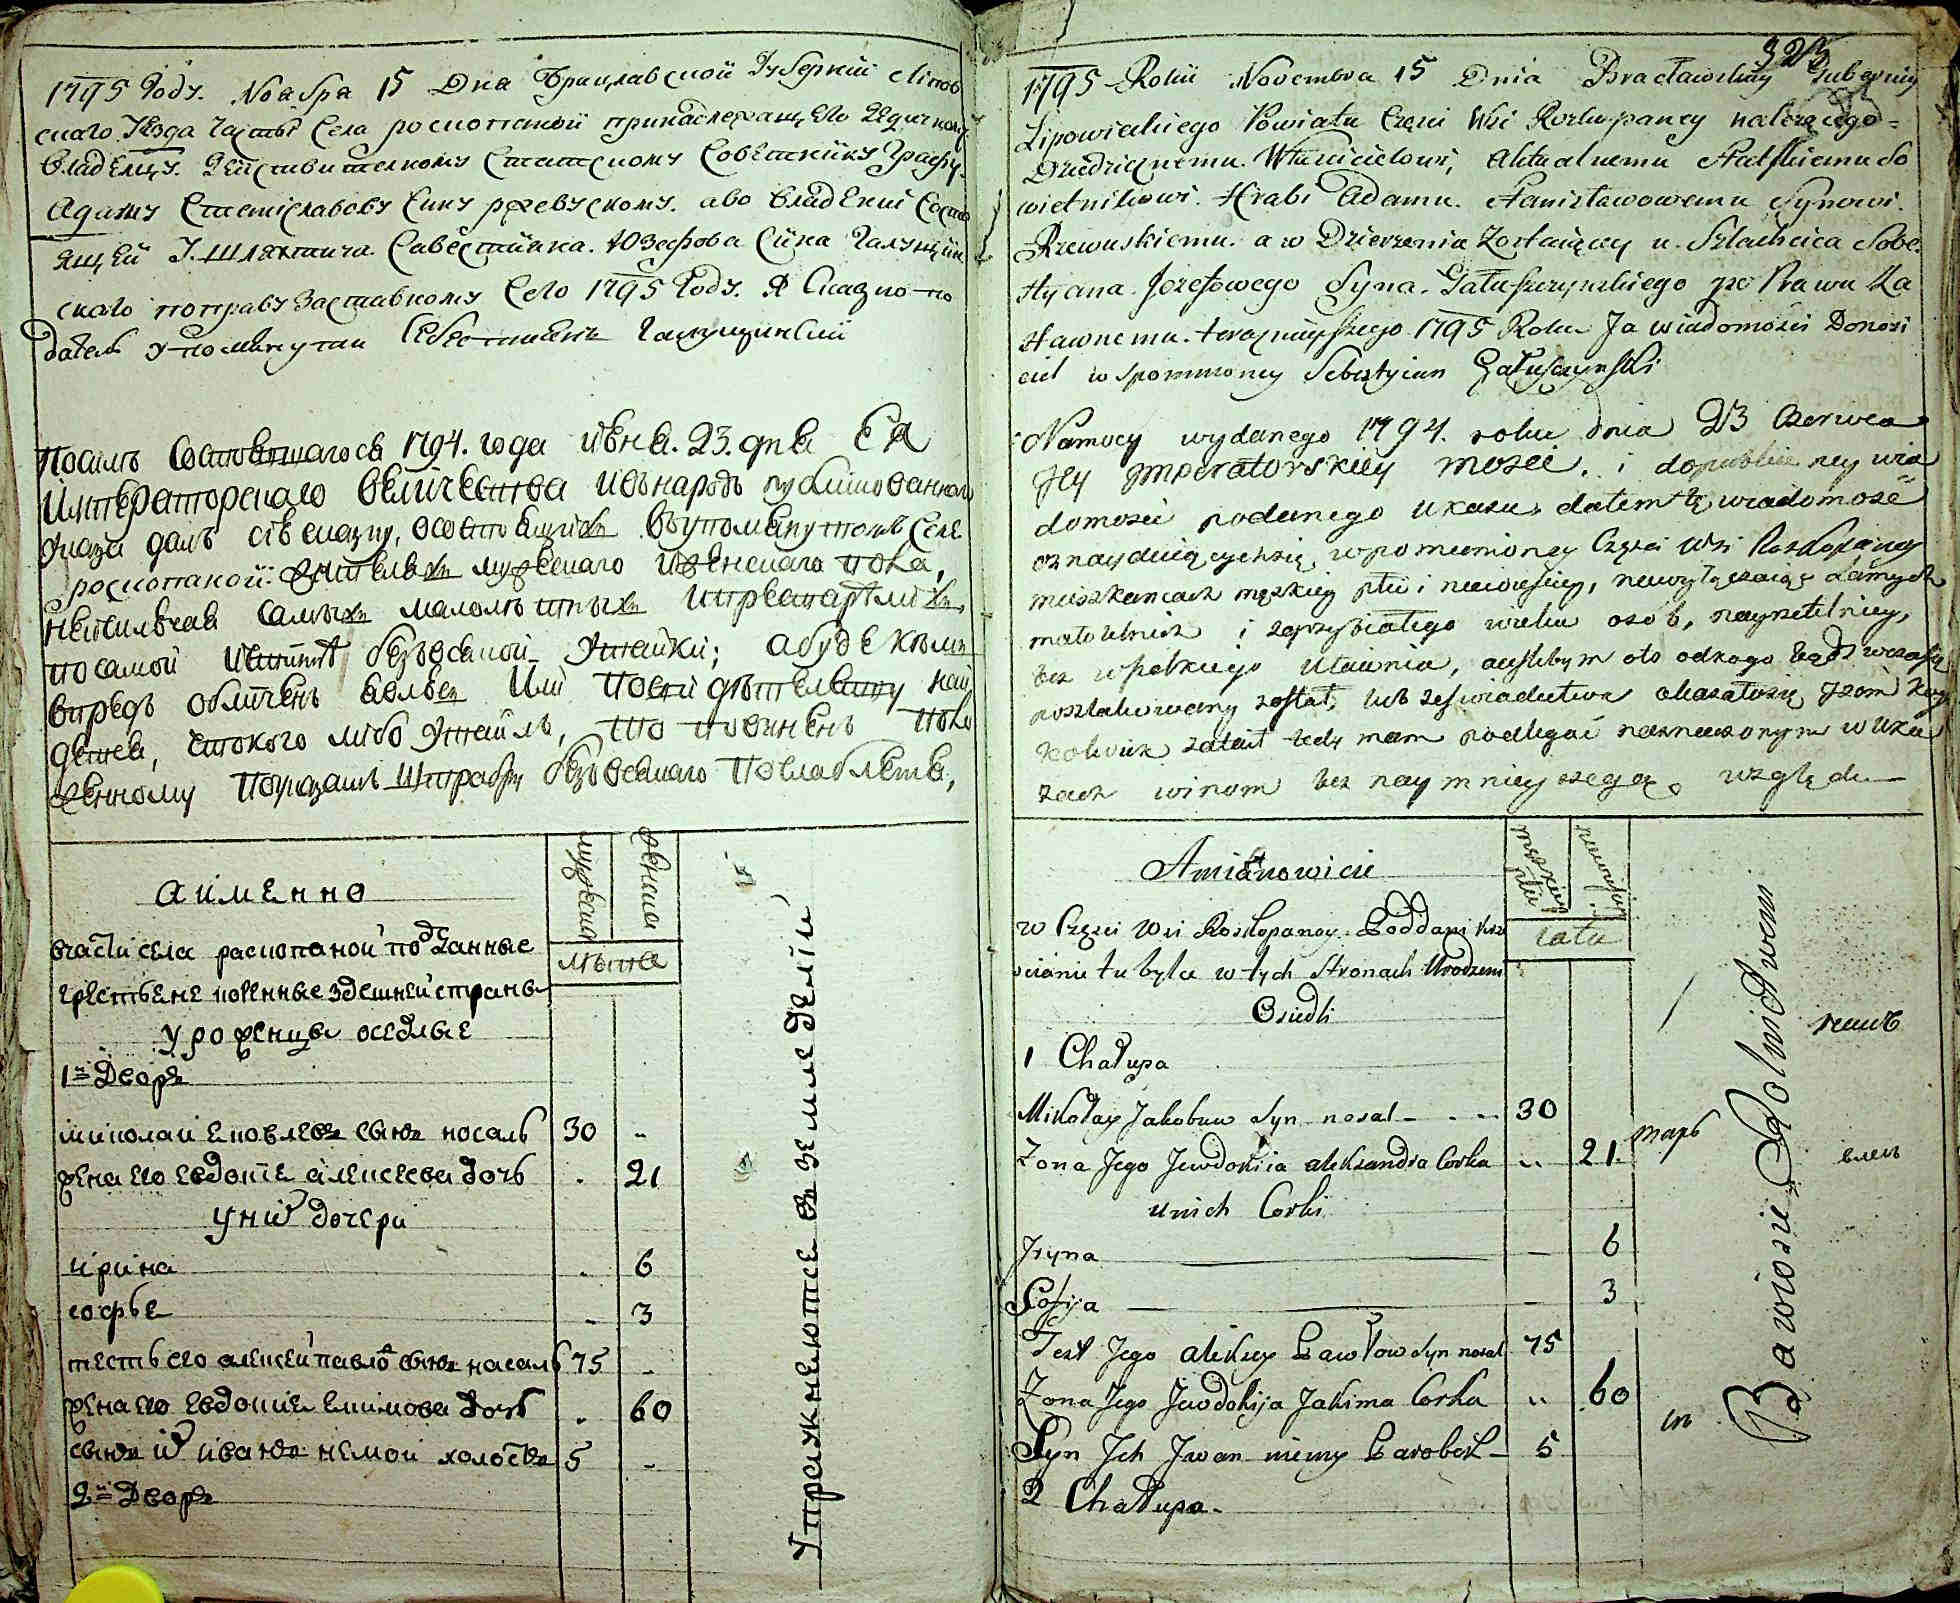 1795 Году. Ноабра 15 Дна Брацлавской Губернiи Липов
скаго Уезда Части Села роскопаной принадлежащего Дедичному
Владелцу. Действителному Статскому Советнику Графу
Адаму Станiславову Сину ржевускому. аво Владенiи Состо
ящей У. Шляхтича. Савестияна. Юзефова Сiна Галущин
скаго поправу Заставному Сего 1795 Году. Я Сказко-по
датель упомянутаи Себестианъ Галущинский
Посилъ Состоявшагося 1794. года июня. 23. дня ЕЯ
Императорскаго величества ивънародъ публикованнаго
указа далъ сiю сказку, осостоящихъ въупомянутомъ селе
роскопаной: жителяхъ мужескаго иженскаго пола,
невиключая самыхъ малолѣтныхъ ипрестарѣлыхъ,
посамой истиннѣ безъвсякой утайки; абуде кѣмъ
впредь обличенъ явлюсь или посвидѣтелству най
дется, чтокого либо утаилъ, то повиненъ поло
женному поуказамъ штрафу безъвсякаго послабленiя,
аименно
мужеска
женска
лѣта
вчасти села раскопаной подданные
крестьяне коренные здешней страны
уроженцы оседлые
1й Дворъ
миколаи яковлевъ сынъ носаль 30 -
жена его евдокiя алексеева дочь . 21
у них дочери
ирина . 6
софья - 3
тесть его алексей павловъ сынъ насаль 75 -
жена его евдокия екимова дочь . 60
сынъ их иванъ немой холостъ 5 -
2й Дворъ
Упражняются въ земледелии
323
1795 Roku Novembra 15 Dnia Bracławskiey Gubernii
Lipowieckiego Powiatu Części Wsi Roskopaney należącego
Dziedzicznemu Włascicielowi, Aktualnemu Statskiemu So
wietnikowi. Hrabi Adamu. Stanisławowemu Synowi.
Rzewuskiemu. a w Dzierzeniu Zostaiącey u. Szlachcica Sobe
styana. Jozefowego Syna. Gałuszczynskiego po Prawu Za
stawnemu. teraznieyszego 1795 Roku Ja wiadomosci Donosi
ciel wspomniony Sebestyian Gałuszczynski
Namocy wydanego 1794. roku dnia 23 Czerwca
Jey Jmperatorskiey mosci. i dopubliczney wia
domosci podanego ukazu, dałem tę wiadomość
oznayduiących się wpomienioney Części Wsi Roskopaney
mieszkancach męskiey płci i niewieściey, niewyłączaiąc samych
małoletnich i zgrzybiałego wieku osob, nayrzetelniey,
bez wszelkiego utaienia, a ieslibym oto odkogo bądź wczasie
poszlakowany został, lub zeswiadectwa okazałosię żzem kogo
kolwiek zataił tedy mam podlegać naznaczonym w uka
zach winom bez naymnieyszego względu
Amianowicie
męzkiey płci
niewiesciey
Lata
w Części Wsi Roskopaney Poddani kre
scianie tu bylcy w tych Stronach Urodzeni
Osiedli
1 Chałupa
Mikołay Jakobuw Syn nosal - - - 30
Zona Jego Jewdokiia aleksandra Corka .. 21
unich Corki
Jryna — 6
Sofija — 3
Test Jego aleksey Pawłow Syn nosal 75
Zona Jego Jewdokija Jakima Corka .. 60
Syn Jch Jwan niemy Parobek - 5
2 Chałupa -
Bawiosie Rolnictwem